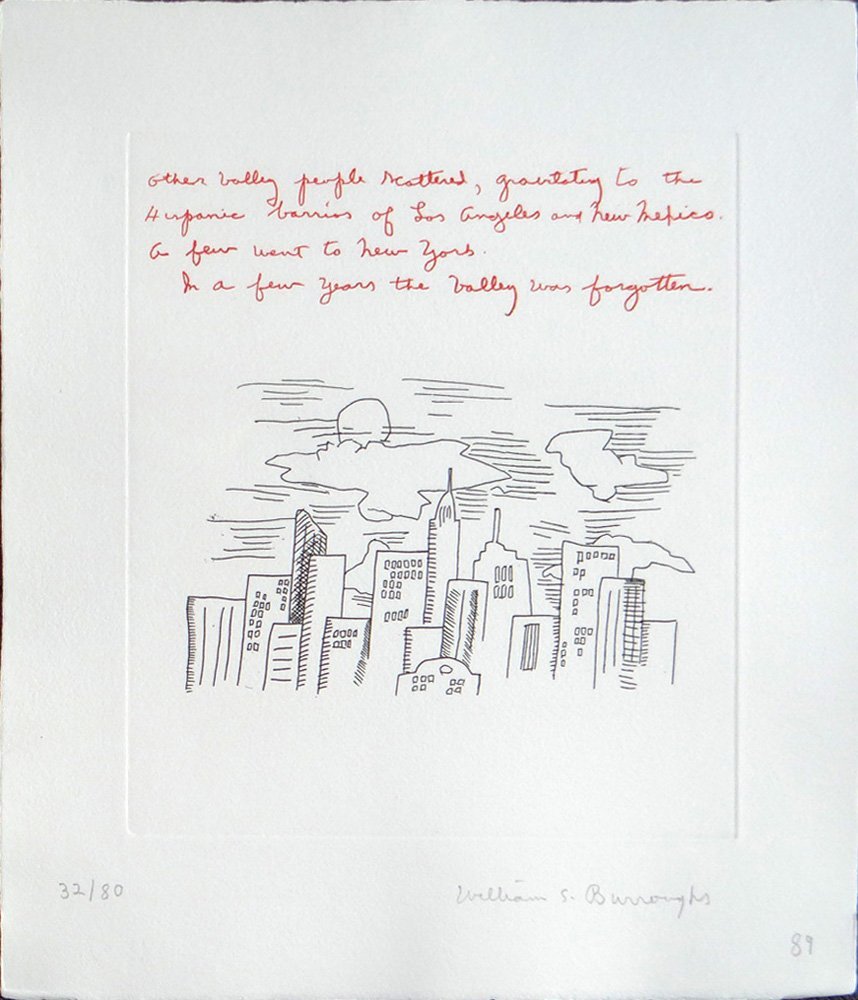 other Valley people scattered, gravitating to the
Hispanic barrios of Los Angeles and New Mexico.
A few went to New York.
In a few years the Valley was forgotten.
32/80
William S. Burroughs
89